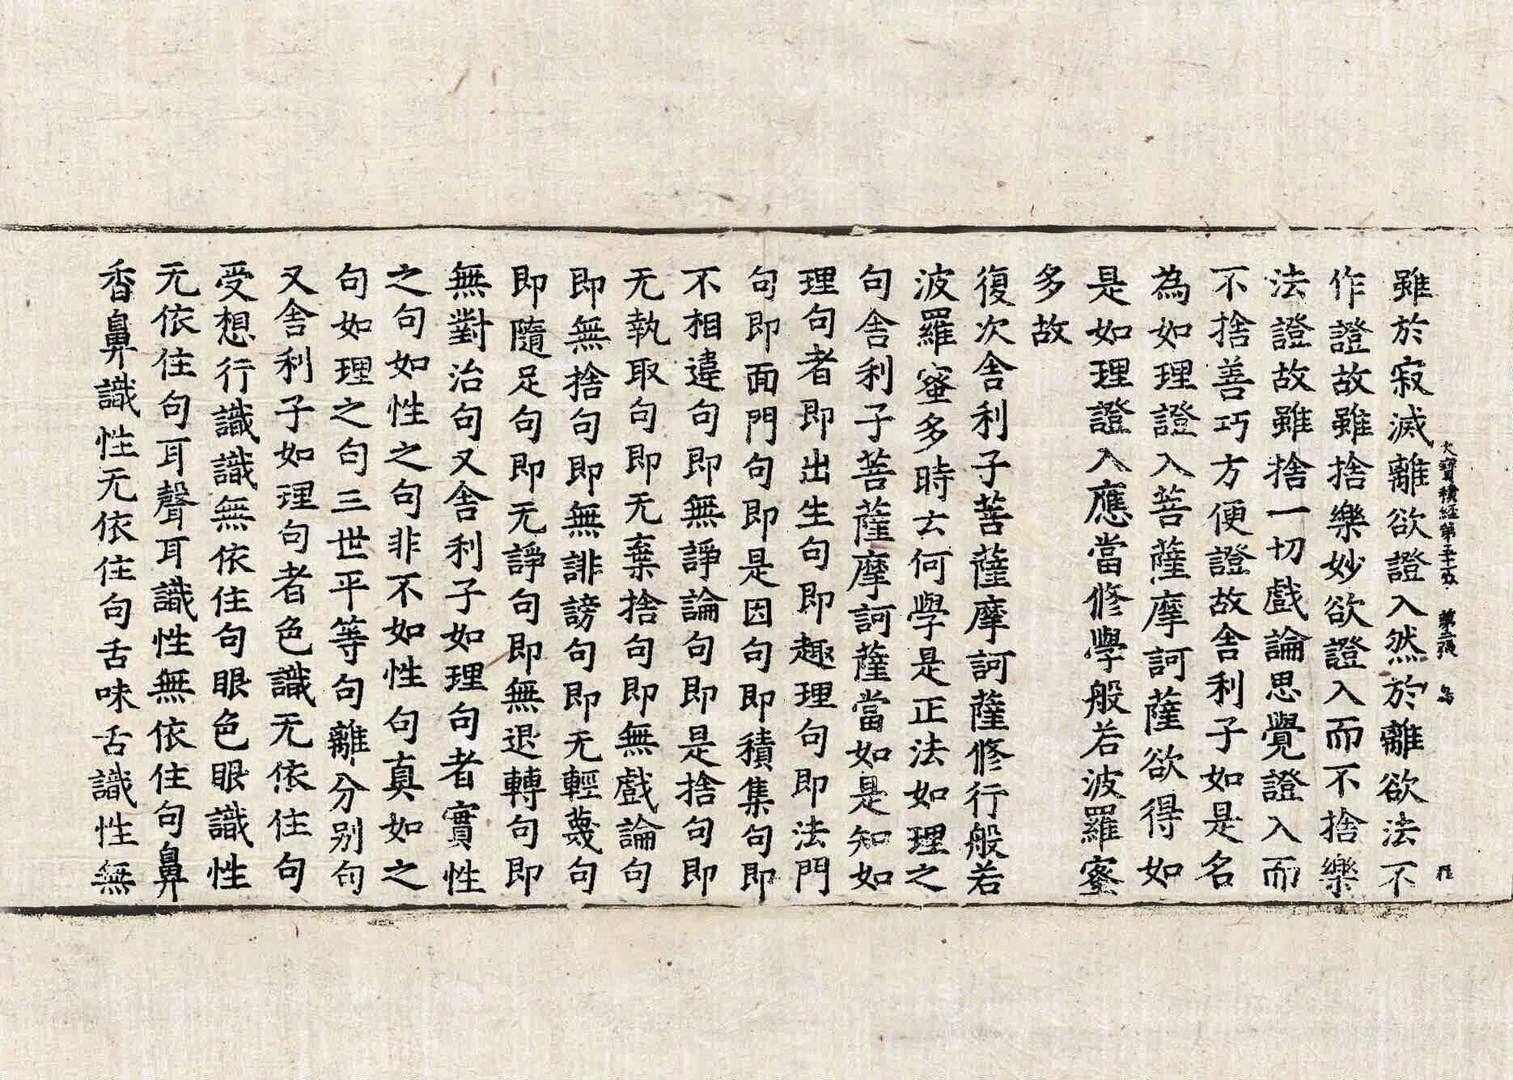 大寶積經第五十四 第二張 鳥 程
雖於寂滅離欲證入然於離欲法不
作證故雖捨樂妙欲證入而不捨樂
法證故雖捨一切戲論思覺證入而
不捨善巧方便證故舍利子如是名
為如理證入菩薩摩訶薩欲得如
是如理證入應當修學般若波羅蜜
多故
復次舍利子菩薩摩訶薩修行般若
波羅蜜多時云何學是正法如理之
句舍利子菩薩摩訶薩當如是知如
理句者即出生句即趣理句即法門
句即面門句即是因句即積集句即
不相違句即無諍論句即是捨句即
无執取句即无棄捨句即無戲論句
即無捨句即無誹謗句即无輕蔑句
即隨足句即无諍句即無退轉句即
無對治句又舍利子如理句者實性
之句如性之句非不如性句真如之
句如理之句三世平等句離分別句
又舍利子如理句者色識无依住句
受想行識識無依住句眼色眼識性
无依住句耳聲耳識性無依住句鼻
香鼻識性无依住句舌味舌識性無